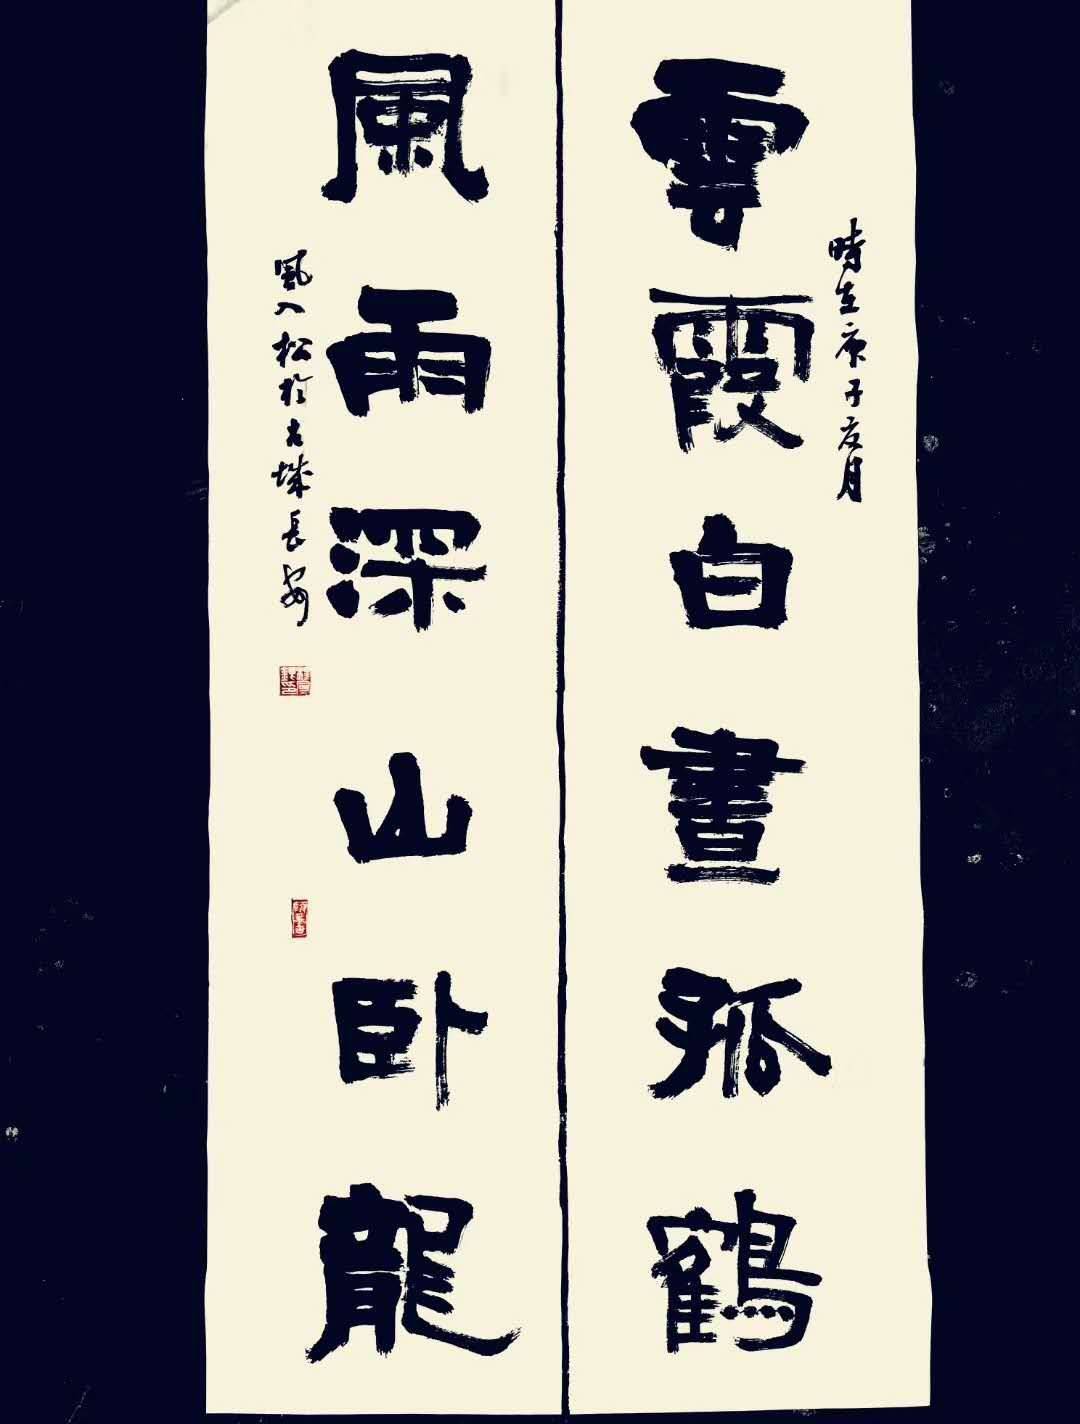 雲霞白晝孤鶴
時在庚子夏月
風雨深山臥龍
風入松於古城長安